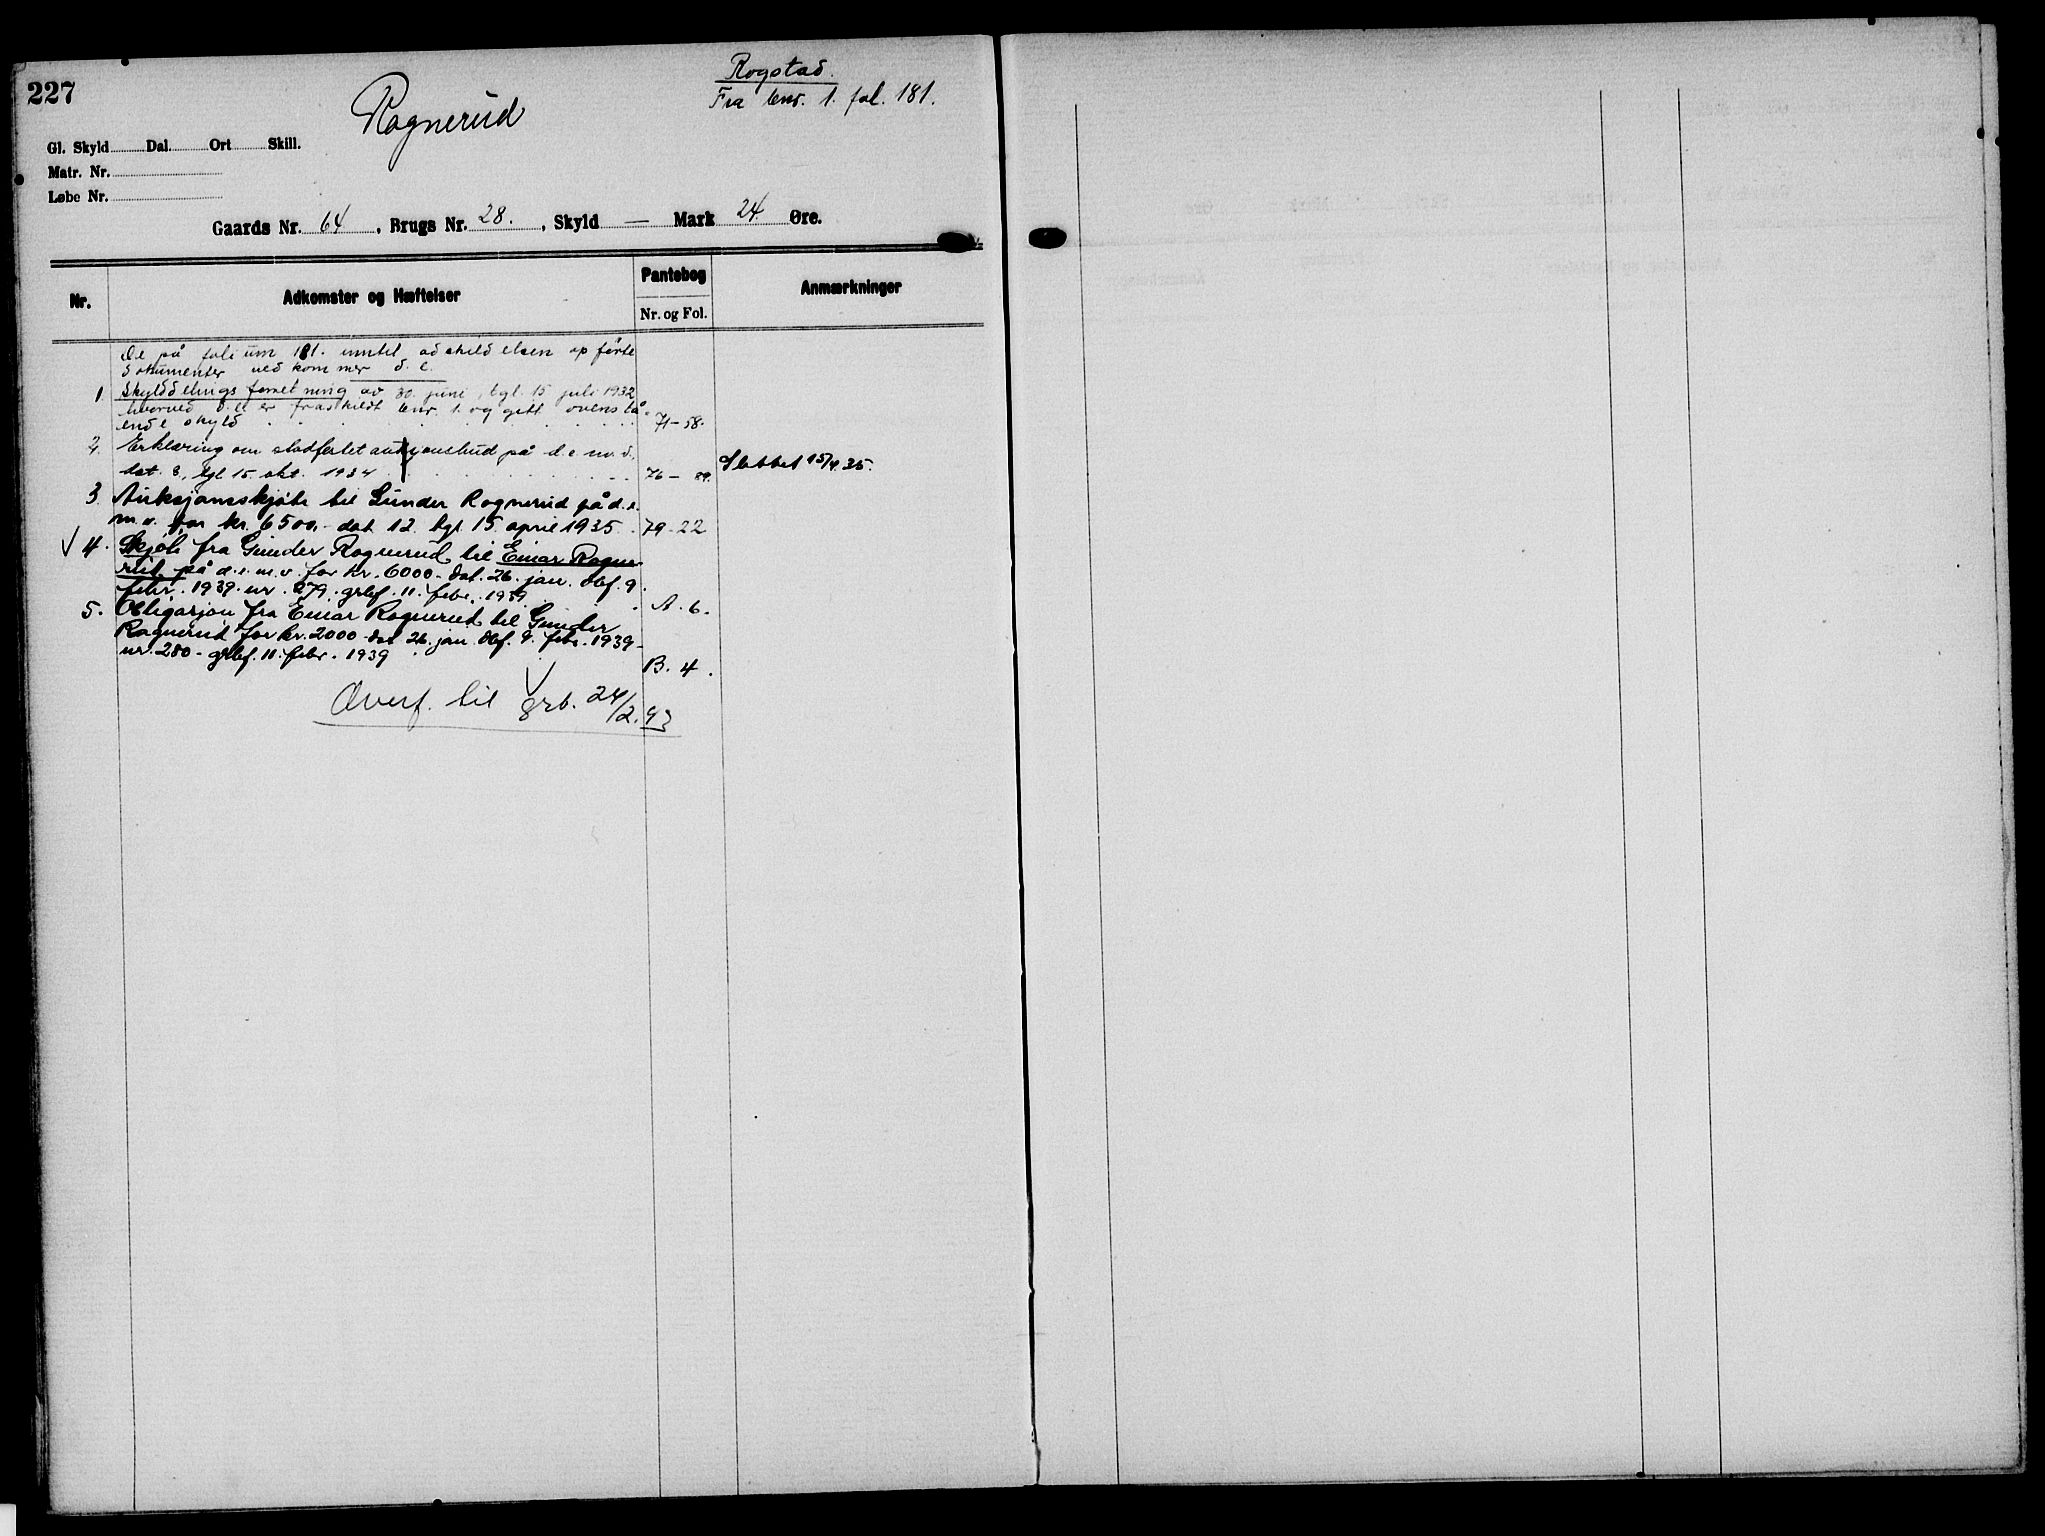 227
Rognerud
Rogstad.
Fra bnr. 1. fol. 181.
Gl. Skyld Dal. Ort Skill.
Matr. Nr.
Løbe Nr.
Gaards Nr. 64, Brugs Nr. 28., Skyld — Mark 24 Øre.
Nr. Adkomster og Hæftelser Pantebog Anmærkninger
Nr. og Fol.
De på folium 181. inntil adskildelsen opførte
dokumenter vedkommer d. e.
1 Skylddelingsforretning av 30. juni, tgl. 15 juli 1932
hvorved d. e. er fraskildt bnr. 1. og gitt ovenstå-
ende skyld 71-58.
2. Erklæring om stadfestet auksjonsbud på d. e. m. v.
dat. 8., tgl 15. okt. 1934 76- 89. Slettet 15/4.35.
3. Auksjonsskjøte til Gunder Rognerud på d. e.
m. v. for kr. 6500.- dat 12. tgl 15. april 1935. 79-22
√ 4. Skjøte fra Gunder Rognerud til Einar Rogne-
rud på d. e. m. v. for kr. 6000- dat. 26. jan. dbf. 9.
febr. 1939. nr. 279. grbf. 11. febr. 1939 A. 6.
5. Obligasjon fra Einar Rognerud til Gunder
Rognerud for kr. 2000- dat 26. jan. dbf. 9. febr. 1939-
nr. 280- grbf. 11. febr. 1939 B. 4.
Overf. til grb. 24/2.43